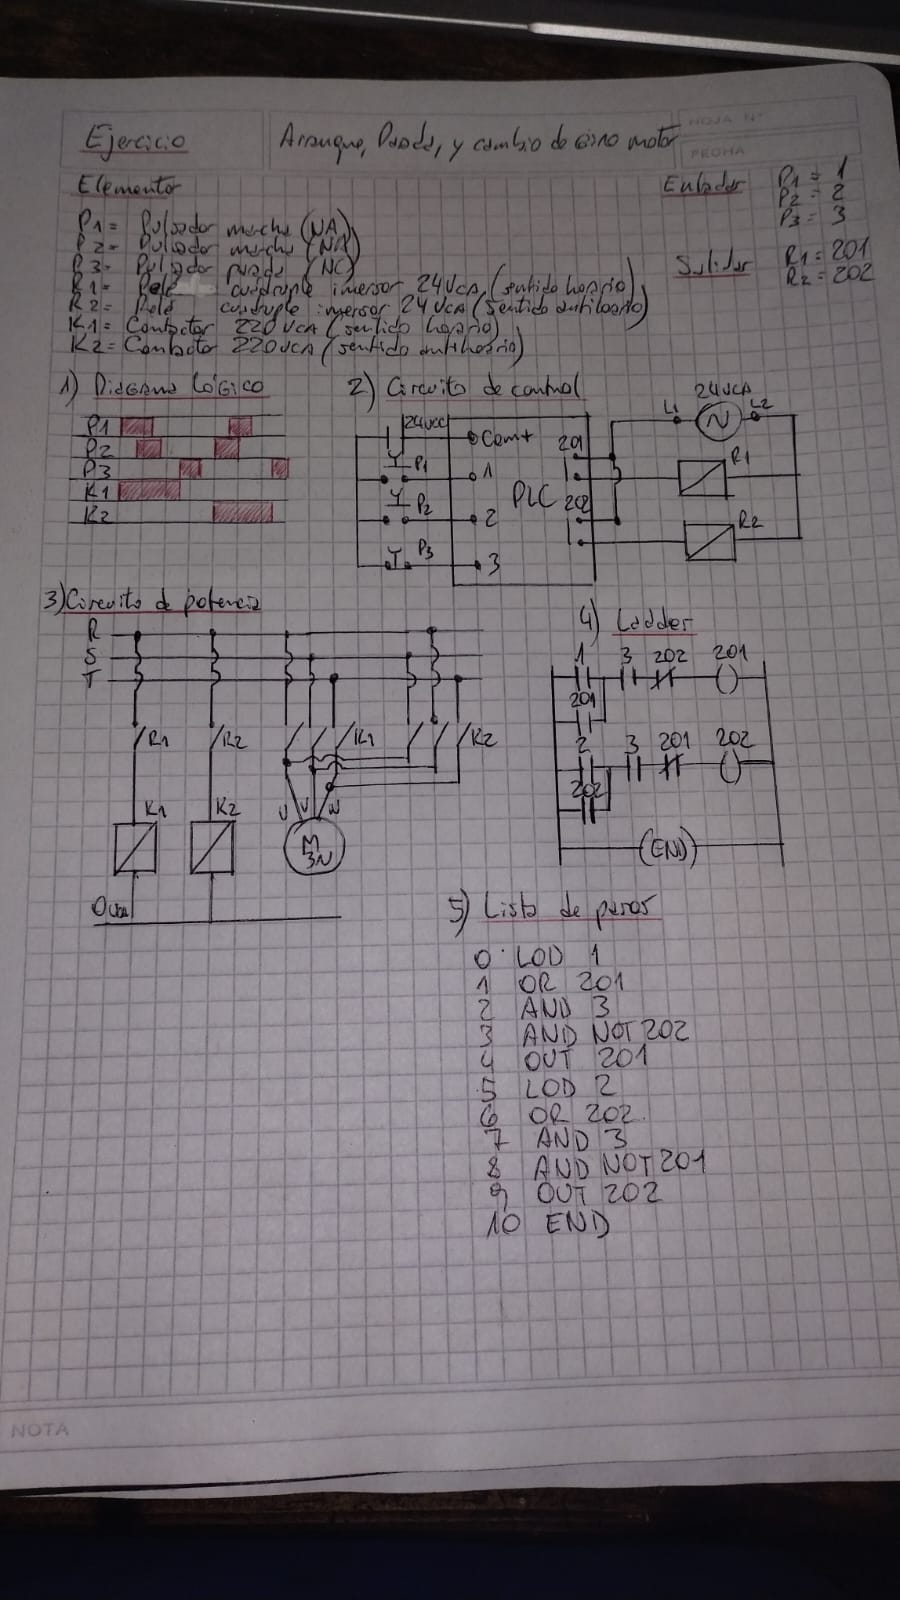 Ejercicio
Arranque, Parada, y cambio de giro motor
HOJA N°
FECHA
Elementos
P1= Pulsador marcha (NA)
P2= Pulsador marcha (NA)
P3= Pulsador parada (NC)
R1= Relé cuadruple inversor 24VCA (sentido horario)
R2= Relé cuadruple inversor 24VCA (sentido antihorario)
K1= Contactor 220VCA (sentido horario)
K2= Contactor 220VCA (sentido antihorario)
Entradas
P1 = 1
P2 = 2
P3 = 3
Salidas
R1 = 201
R2 = 202
1) Diagrama Lógico
P1
P2
P3
K1
K2
2) Circuito de control
24VCC
Com+
P1
1
P2
2
P3
3
PLC
201
202
24VCA
L1
N
L2
R1
R2
3) Circuito de potencia
R
S
T
R1
R2
K1
K2
K1
K2
U V W
M
3N
0Vca
4) Ladder
1 3 202 201
201
2 3 201 202
202
(END)
5) Lista de pasos
0 LOD 1
1 OR 201
2 AND 3
3 AND NOT 202
4 OUT 201
5 LOD 2
6 OR 202
7 AND 3
8 AND NOT 201
9 OUT 202
10 END
NOTA